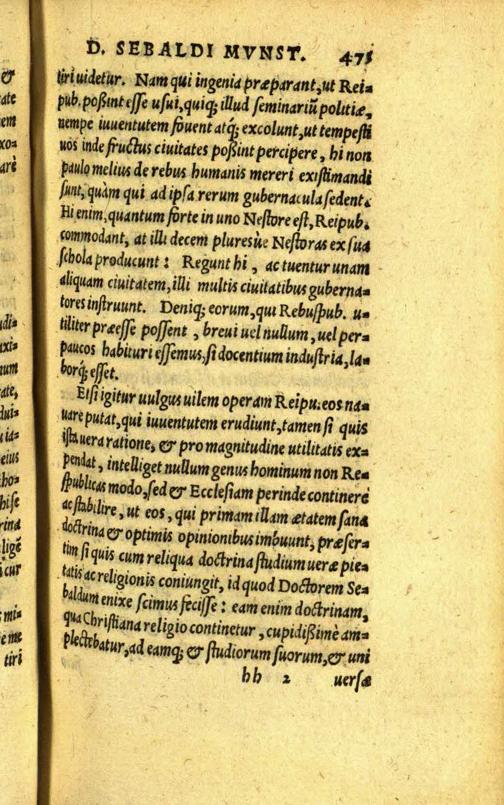 &
ate
em
xo=
arè
udi=
uxi=
num
ate,
dui=
u ia=
eius
ho=
hi se
rina
ligẽ
icur
s mi=
ie me
tiri
D. SEBALDI MVNST. 475
tiri uidetur. Nam qui ingenia præparant, ut Rei=
pub. poßint esse usui, quiq; illud seminariũ politiæ,
nempe iuuentutem fouent atq; excolunt, ut tempesti
uos inde fructus ciuitates poßint percipere, hi non
paulo melius de rebus humanis mereri existimandi
sunt, quàm qui ad ipsa rerum gubernacula sedent.
Hi enim, quantum forte in uno Nestore est, Reipub.
commodant, at illi decem pluresùe Nestoras ex sua
schola producunt: Regunt hi, ac tuentur unam
aliquam ciuitatem, illi multis ciuitatibus guberna=
tores instruunt. Deniq; eorum, qui Rebuspub. u=
tiliter præesse possent, breui uel nullum, uel per=
paucos habituri essemus, si docentium industria, la=
borq; esset.
Etsi igitur uulgus uilem operam Reipu. eos na=
uare putat, qui iuuentutem erudiunt, tamen si quis
ista uera ratione, & pro magnitudine utilitatis ex=
pendat, intelliget nullum genus hominum non Re=
spublicas modo, sed & Ecclesiam perinde continere
ac stabilire, ut eos, qui primam illam ætatem sana
doctrina & optimis opinionibus imbuunt, præser=
tim si quis cum reliqua doctrina studium ueræ pie=
tatis ac religionis coniungit, id quod Doctorem Se=
baldum enixe scimus fecisse: eam enim doctrinam,
qua Christiana religio continetur, cupidißimè am=
plectebatur, ad eamq; & studiorum suorum, & uni
hh 2 uersæ